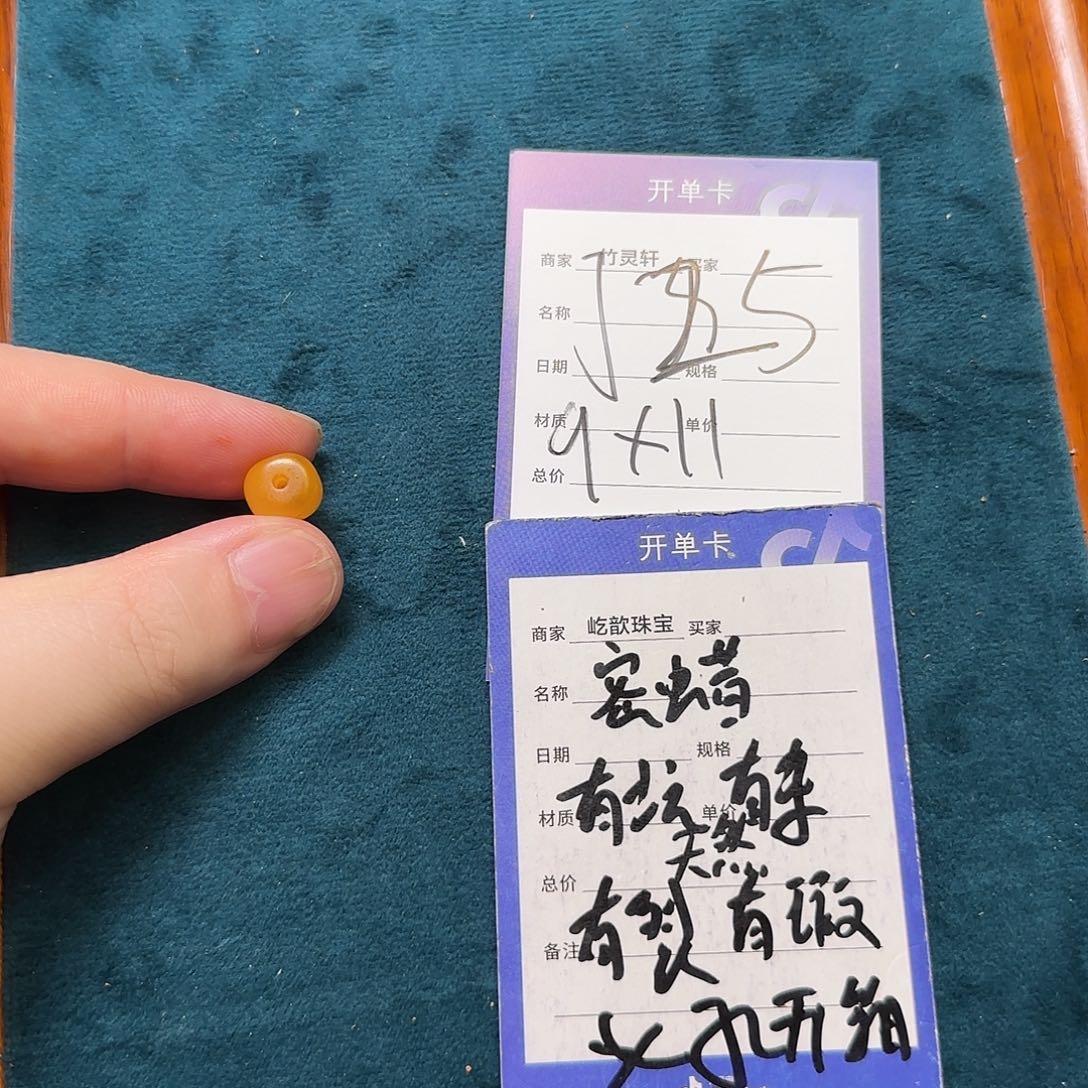 开单卡
商家 竹灵轩 买家
名称
日期 规格
9×11
材质 单价
总价
开单卡
商家 屹歆珠宝 买家
名称 密蜡
日期 规格
有坑 有杂
材质 单价
天然
总价
有裂 有瑕
备注
孔开翔